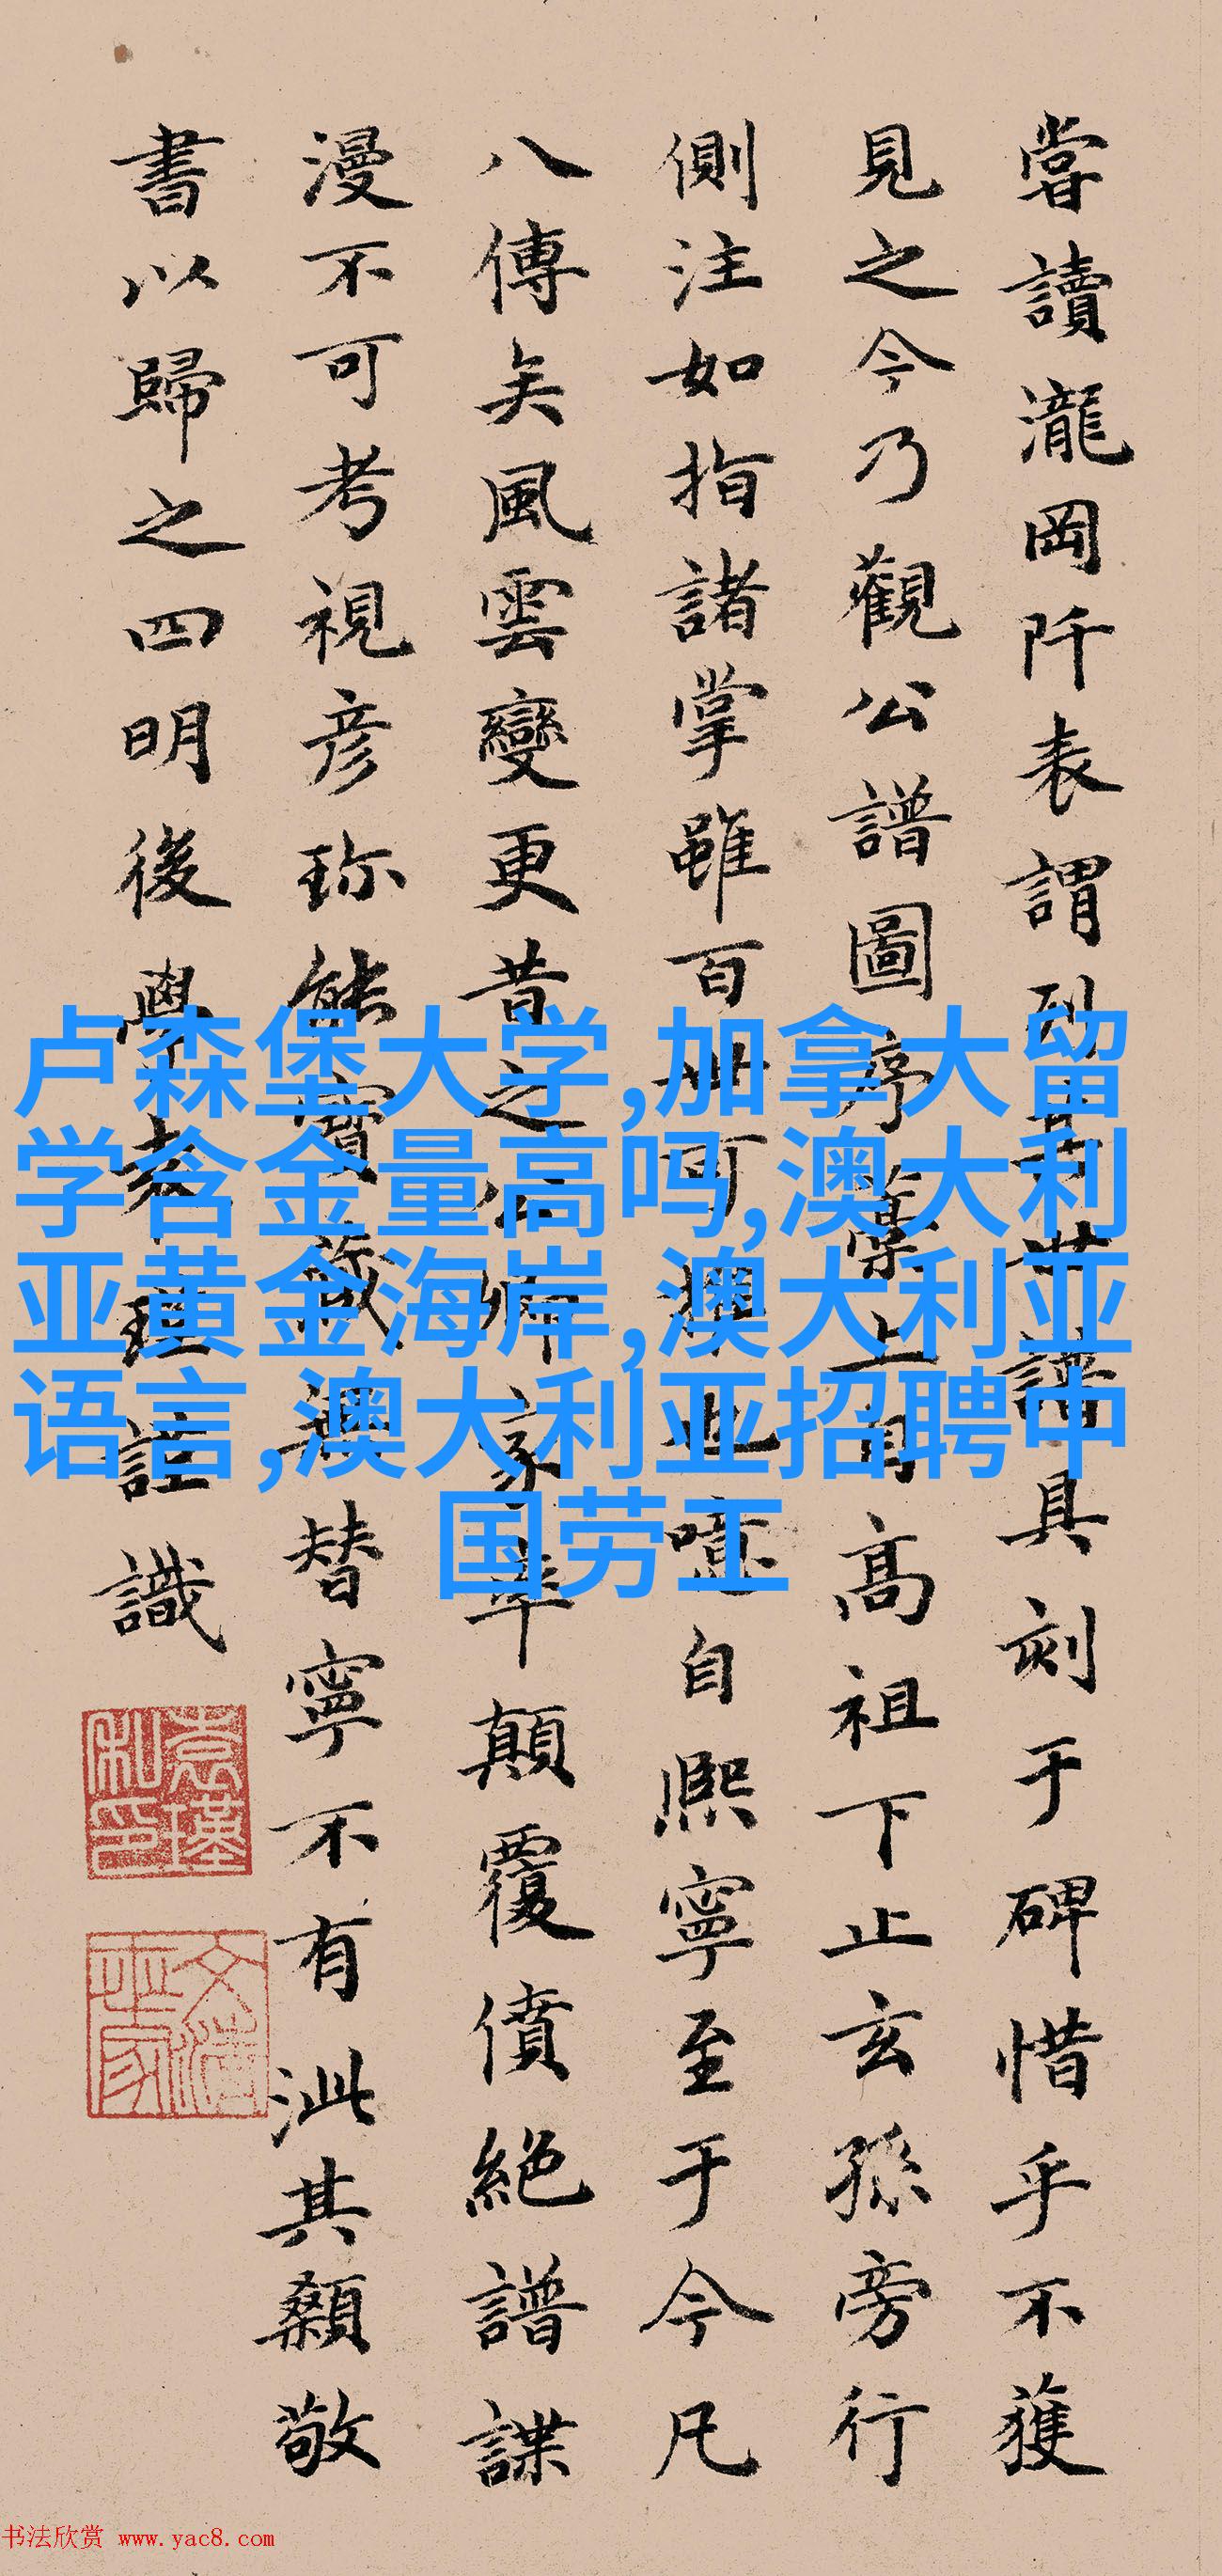 嘗讀瀧岡阡表謂列其世譜具刻于碑惜乎不獲
見之今乃觀公譜圖序藁上自高祖下止玄孫旁行
側注如指諸掌雖百世可澤也噫自熈寧至于今凡
八傳矣風雲變更昔之公卿家率顛覆僨絕譜諜
漫不可考視彥珎能寶藏無替寧不有泚其顙敬
書以歸之四明後學袁瓘謹識
卢森堡大学,加拿大留
学含金量高吗,澳大利
亚黄金海岸,澳大利亚
语言,澳大利亚招聘中
国劳工
书法欣赏 www.yac8.com